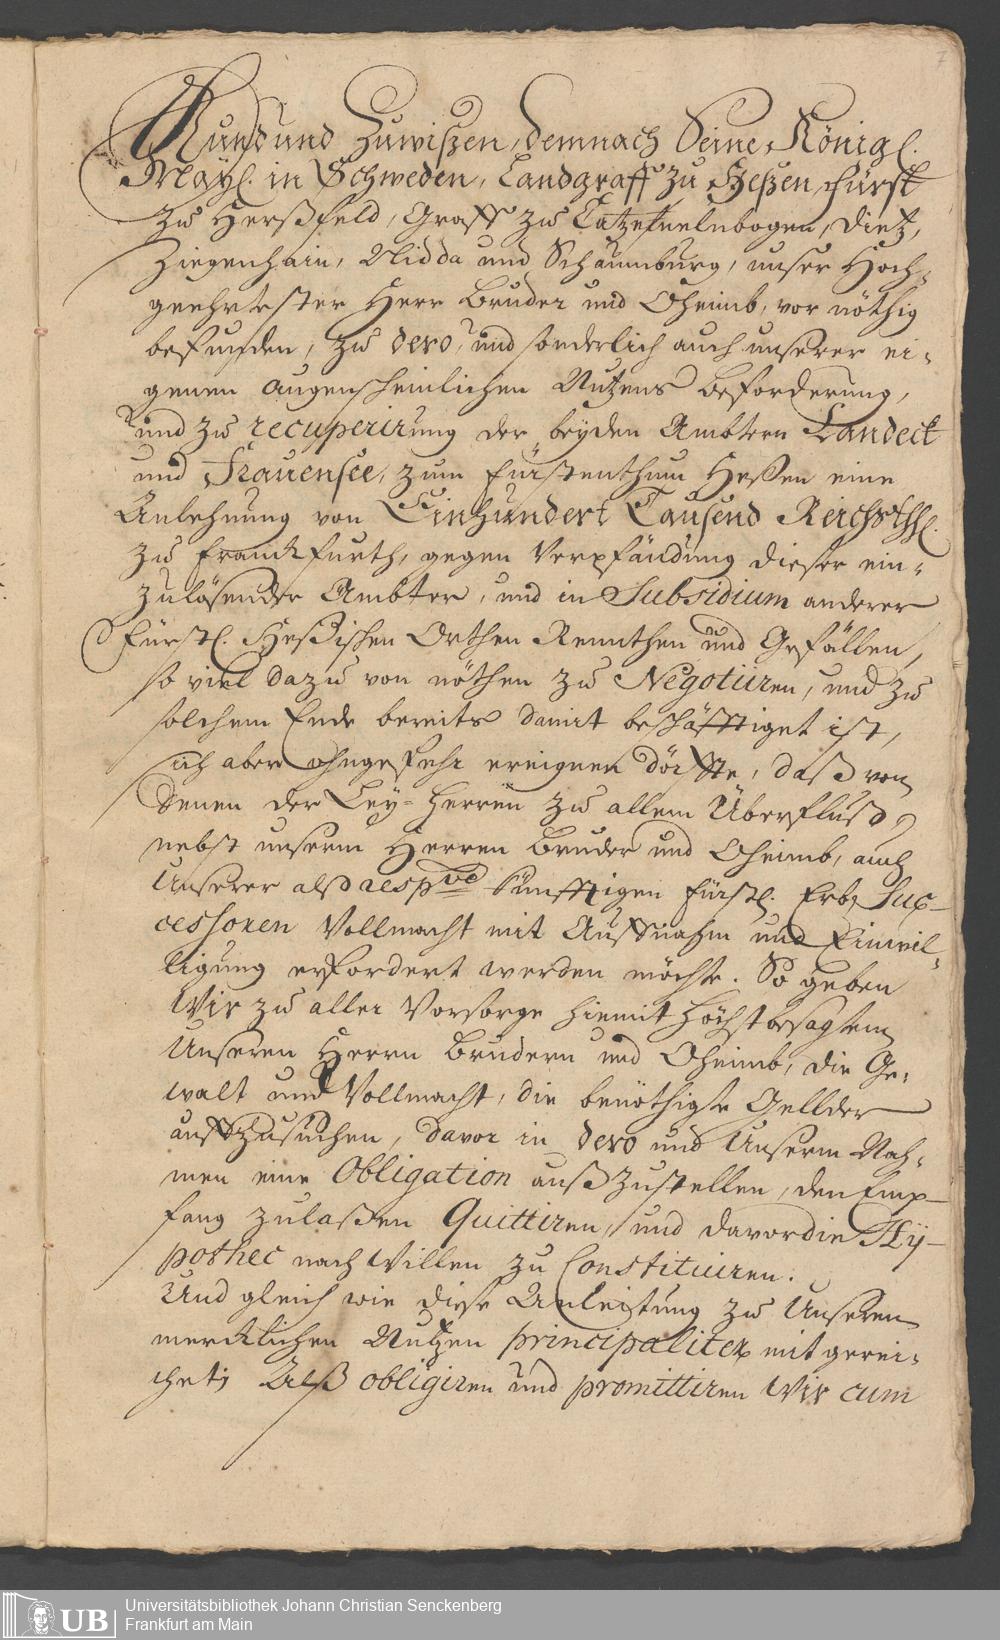 7
Kund und Zuwißen, demnach Seine Königl.
Mayl. in Schweden, Landgraff zu Heßen, fürst
zu Herßfeld, Graff zu Catzenelnbogen, Dietz,
Ziegenhain, Nidda und Schaumburg, unser Hoch-
geehrtester Herr Bruder und Oheimb, vor nöthig
befunden, zu dero, und sonderlich auch unserer ei-
genen augenscheinlichen Nutzens beforderung,
und zu recuperirung der beyden Ambtern Landeck
und Frauensee, zum fürstenthum Hessen eine
Anlehnung von Einhundert Tausend Reichsthl.
zu Franckfurth, gegen Verpfändung dieser ein-
zulösender Ambter, und in Subsidium anderer
fürstl. Heßischen Orthen Rennthen und Gefällen,
so viel dazu von nöthen zu Negotiiren, und zu
solchem Ende bereits damit beschäfftiget ist,
sich aber ohngefehr ereignen dörffte, daß von
denen der Ley-Herren zu allem Überfluß,
nebst unserm Herren Bruder und Oheimb, auch
Unserer alß respve künfftigen fürstl. Erb Suc-
cessoren Vollmacht mit Auffnahm und Einwil-
ligung erfordert werden möchte. So geben
Wir zu aller Vorsorge hiemit höchstbesagtem
Unseren Herrn Brudern und Oheimb, die Ge-
walt und Vollmacht, die benöthigte Gellder
auffzusuchen, davor in dero und Unserm Nah-
men eine Obligation außzustellen, den Emp-
fang zulaßen Quittiren, und davor die Hy-
pothec nach Willen zu Constituiren.
Und gleich wie diese Anleistung zu Unseren
mercklichen Nutzen principaliter mit gerei-
chet; Alß obligiren und promittiren Wir cum
UB
Universitätsbibliothek Johann Christian Senckenberg
Frankfurt am Main